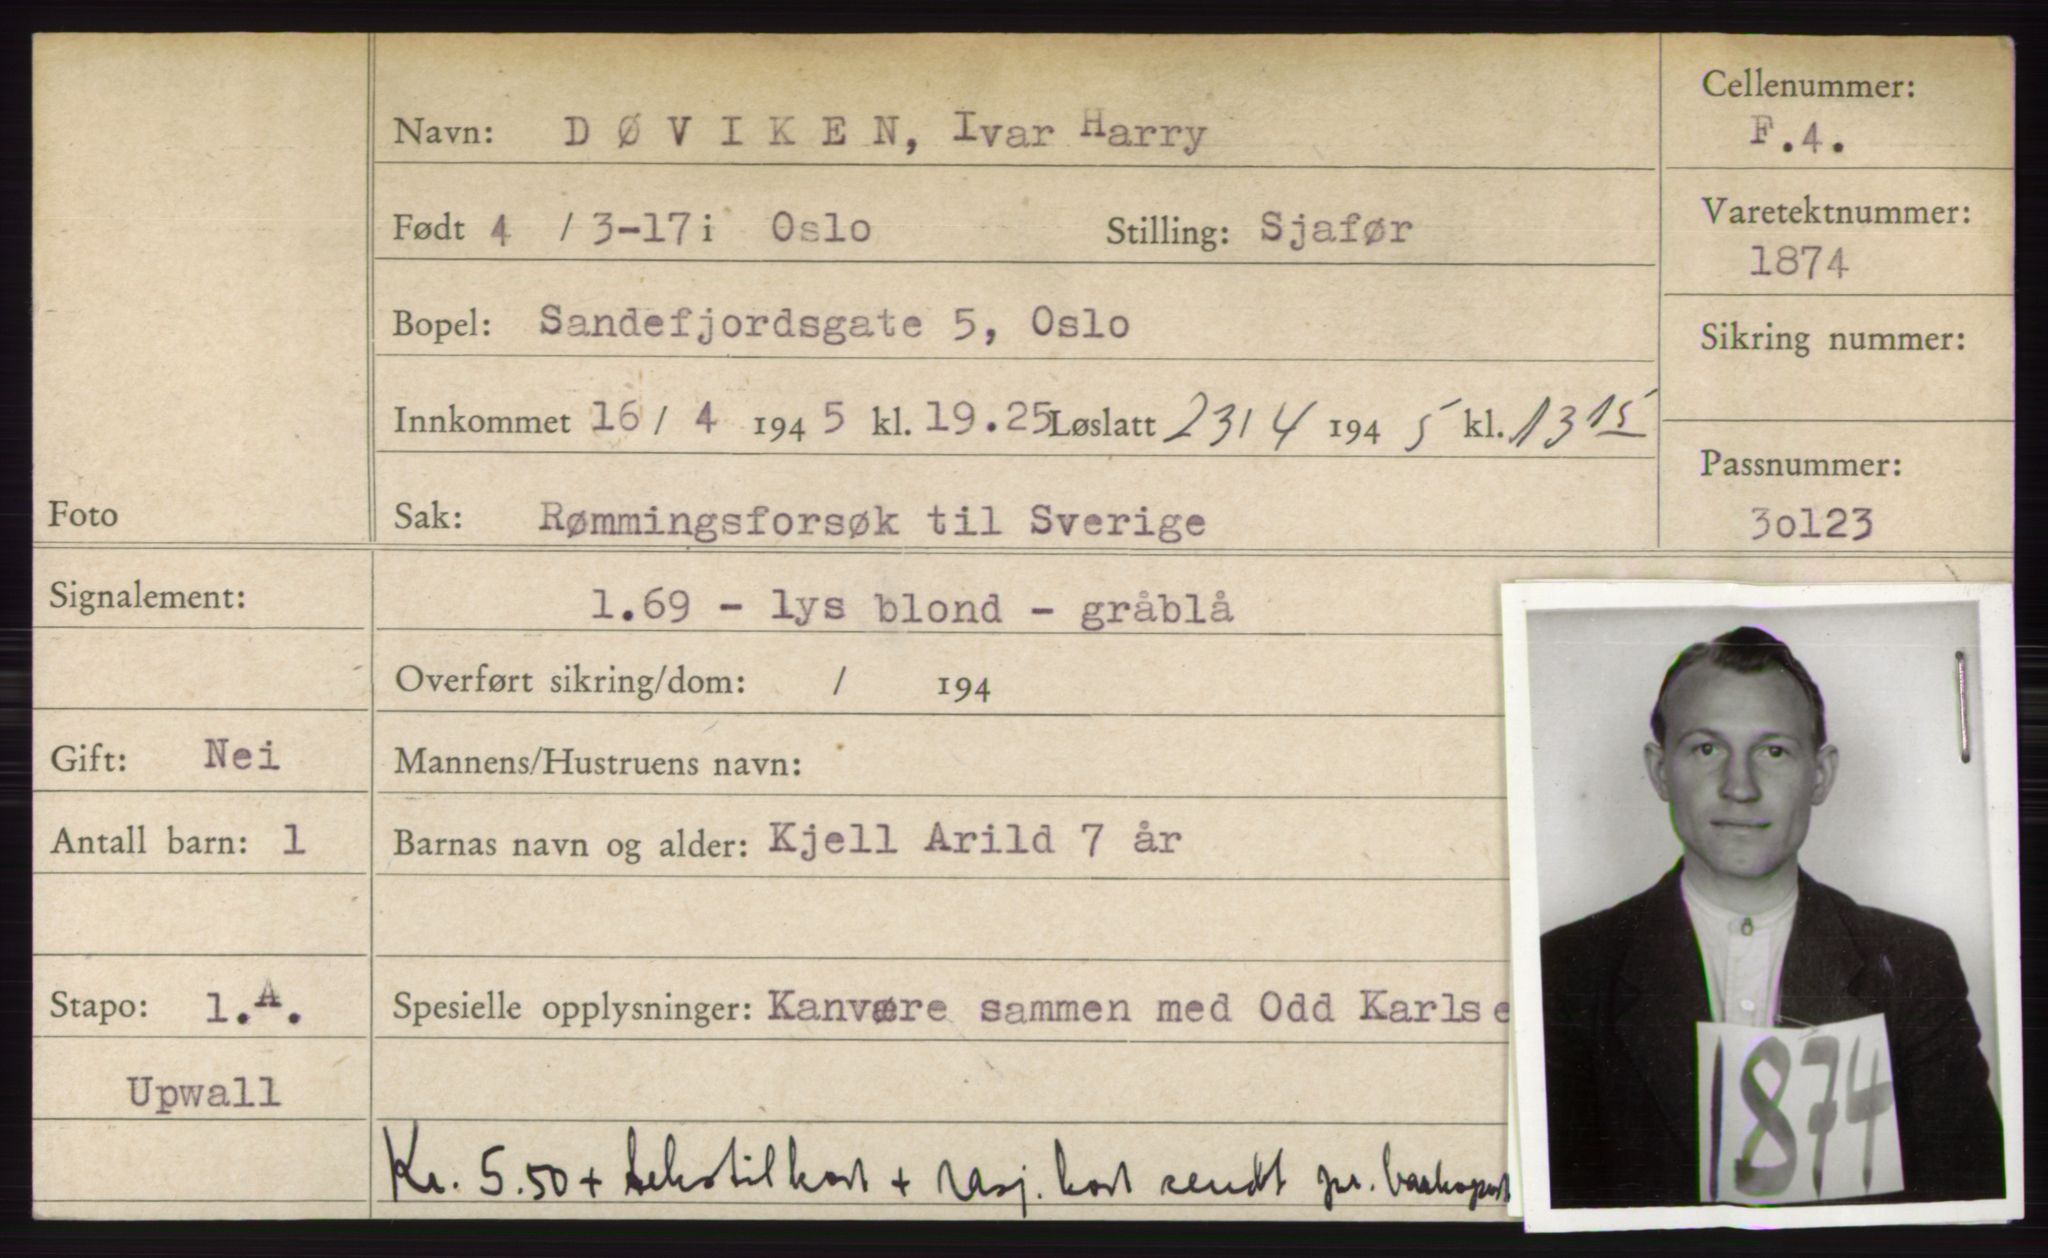 Navn: D Ø V I K E N, Ivar Harry
Cellenummer:
F.4.
Født 4 / 3-17 i Oslo Stilling: Sjafør
Varetektnummer:
1874
Bopel: Sandefjordsgate 5, Oslo
Sikring nummer:
Innkommet 16 / 4 194 5 kl. 19.25 Løslatt 23/4 194 5 kl. 13 15
Passnummer:
30123
Foto
Sak: Rømmingsforsøk til Sverige
Signalement: 1.69 - lys blond - gråblå
Overført sikring/dom: / 194
Gift: Nei Mannens/Hustruens navn:
Antall barn: 1 Barnas navn og alder: Kjell Arild 7 år
Stapo: 1.A. Spesielle opplysninger: Kanvære sammen med Odd Karlse
Upwall
Kr. 5.50 + tekstilkort + rasj. kort sendt pr.
1874